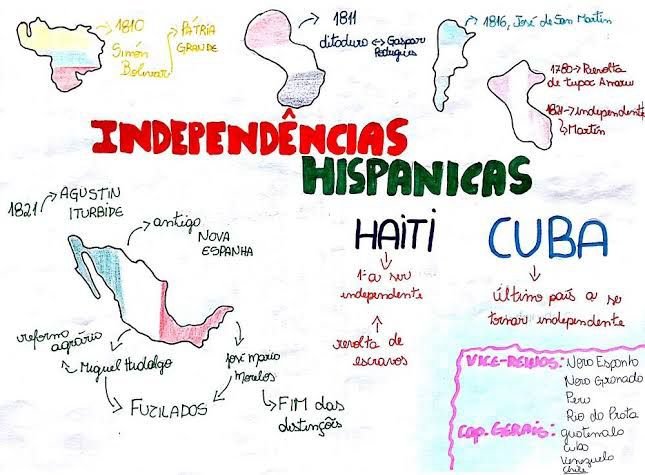 1810
Simón
Bolivar
PÁTRIA
GRANDE
1811
ditadura ↔ Gaspar
Rodrigues
1816, José de San Martin
1780 → Revolta
de tupac Amaru
1821 → independente
Martin
INDEPENDÊNCIAS
HISPANICAS
1821
AGUSTIN
ITURBIDE
antigo
NOVA
ESPANHA
reforma
agrária
Miguel Hidalgo
José Maria
Morelos
FUZILADOS
FIM das
distinções
HAITI
1ª a ser
independente
revolta de
escravos
CUBA
último país a se
tornar independente
VICE-REINOS: Nova Espanha
Nova Granada
Peru
Rio da Prata
Cap. GERAIS: guatemala
Cuba
Venezuela
Chile